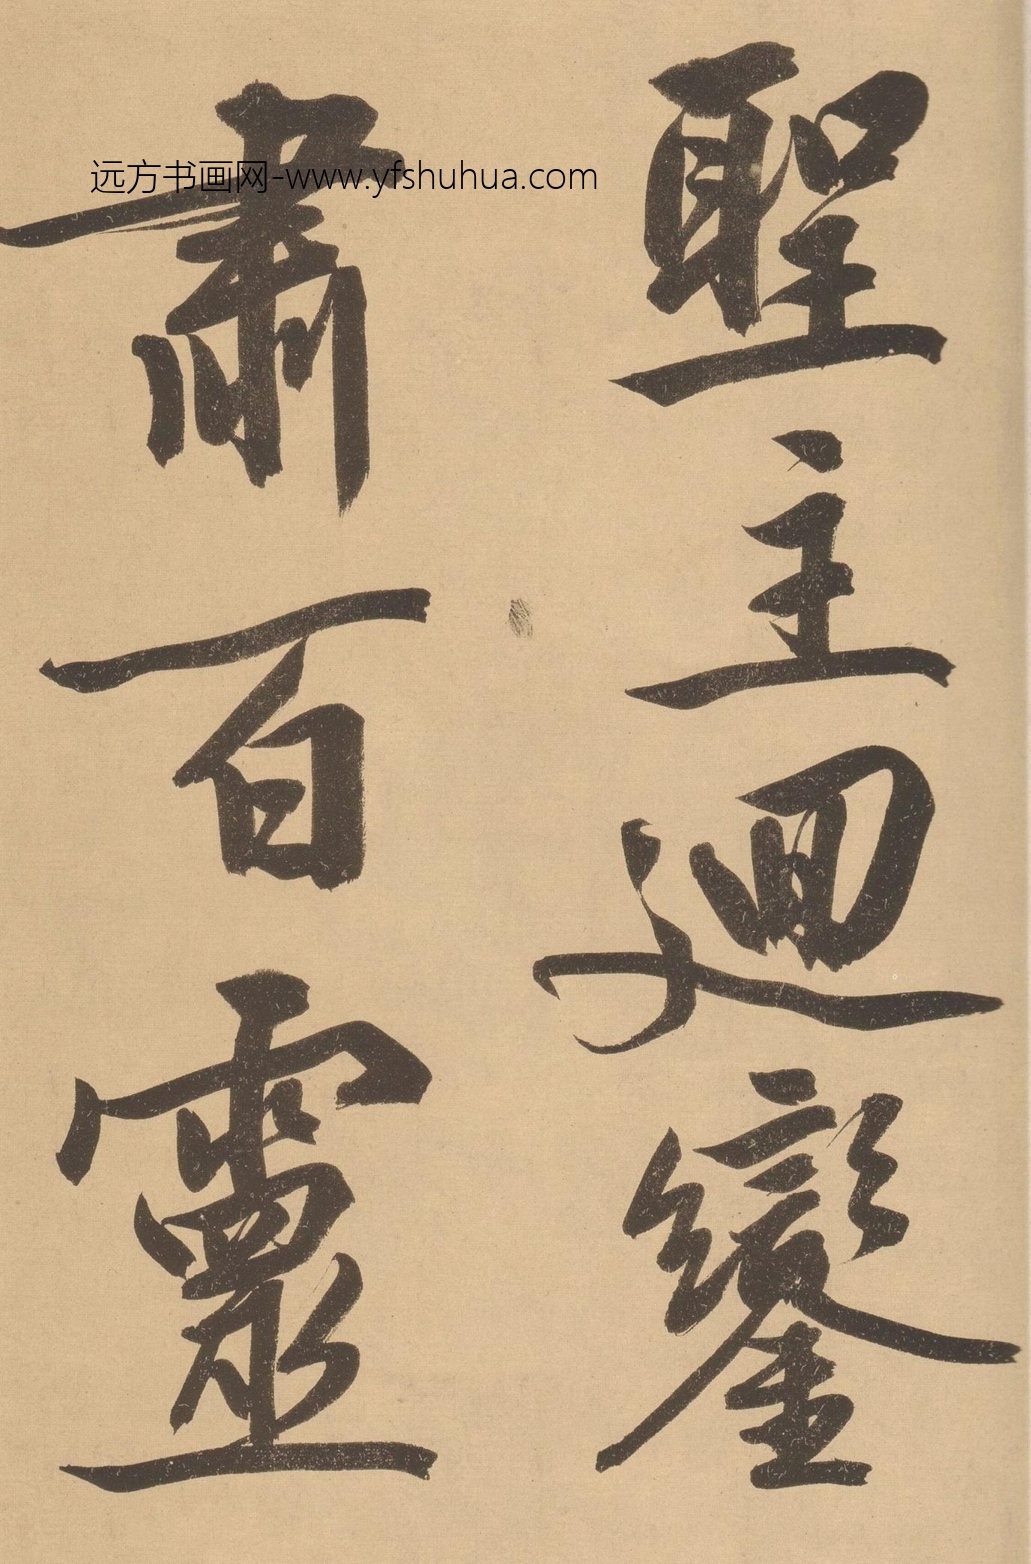 聖主迴鑾
肅百靈
远方书画网-www.yfshuhua.com